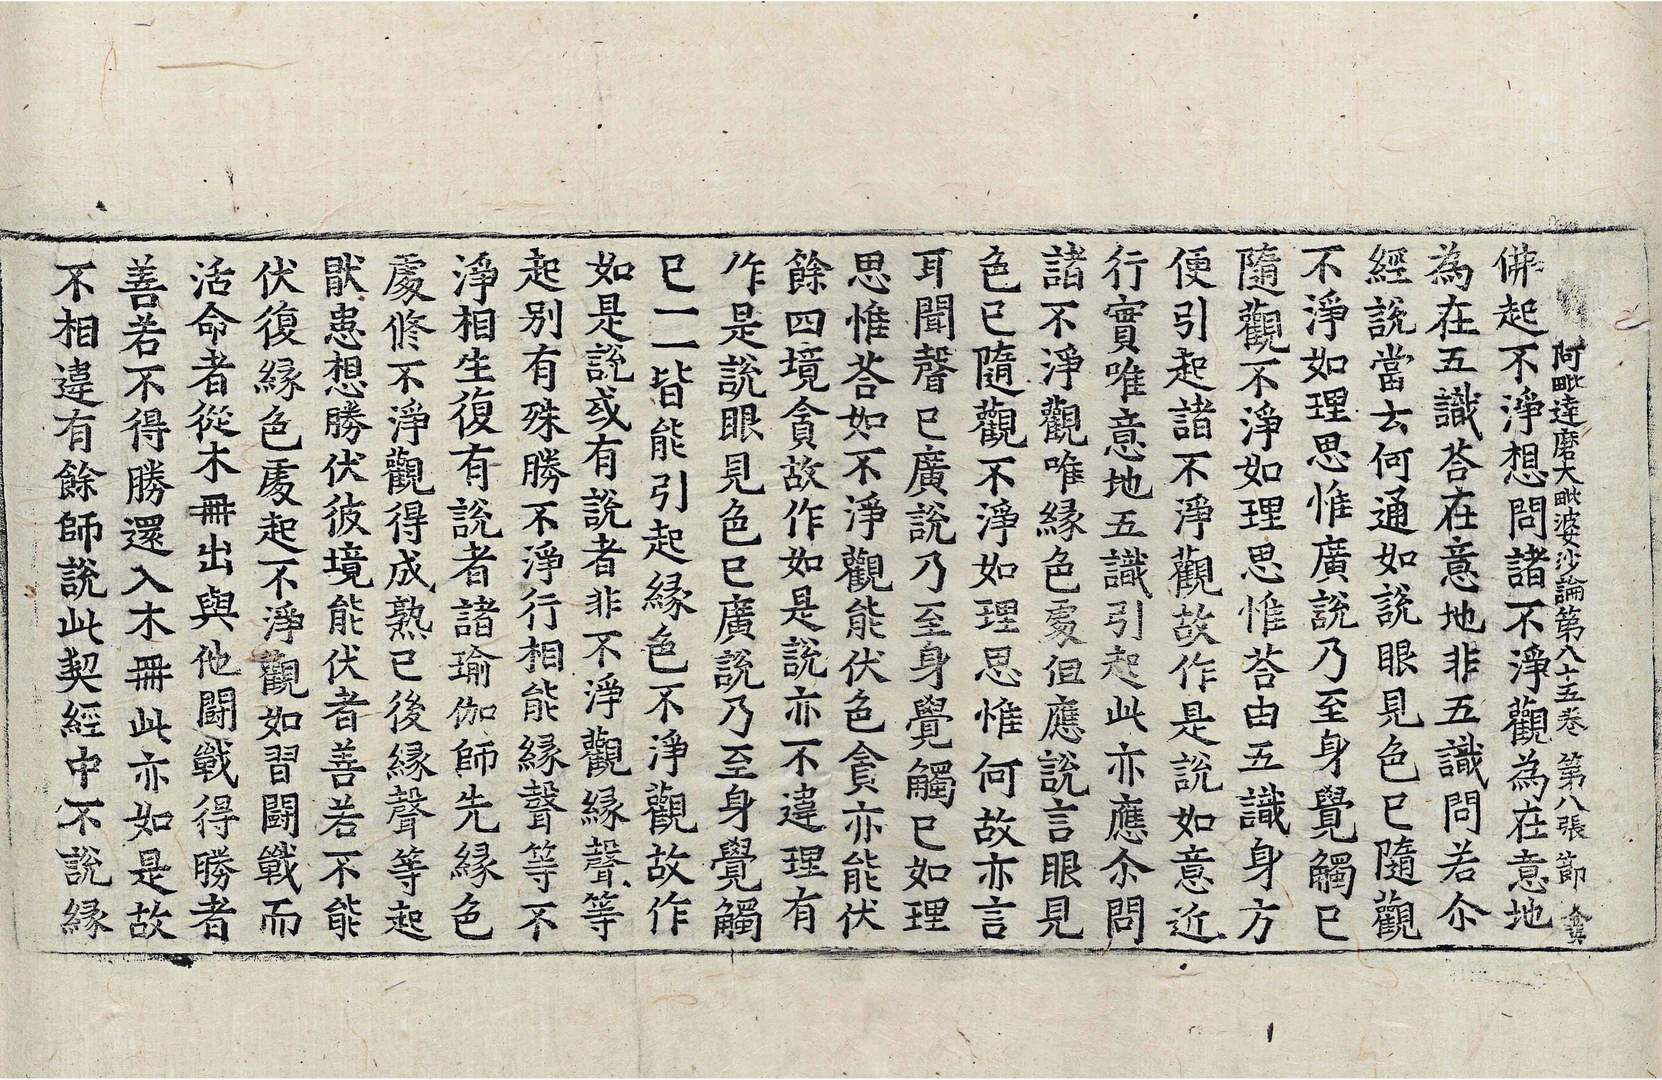 阿毗達磨大毗婆沙論第八十五卷　第八張　節
佛起不淨想問諸不淨觀為在意地
為在五識荅在意地非五識問若尒
經說當云何通如說眼見色已隨觀
不淨如理思惟廣說乃至身覺觸已
隨觀不淨如理思惟荅由五識身方
便引起諸不淨觀故作是說如意近
行實唯意地五識引起此亦應尒問
諸不淨觀唯緣色處但應說言眼見
色已隨觀不淨如理思惟何故亦言
耳聞聲已廣說乃至身覺觸已如理
思惟荅如不淨觀能伏色貪亦能伏
餘四境貪故作如是說亦不違理有
作是說眼見色已廣說乃至身覺觸
已一一皆能引起緣色不淨觀故作
如是說或有說者非不淨觀緣聲等
起別有殊勝不淨行相能緣聲等不
淨相生復有說者諸瑜伽師先緣色
處修不淨觀得成熟已後緣聲等起
猒患想勝伏彼境能伏者善若不能
伏復緣色處起不淨觀如習鬪戰而
活命者從木冊出與他鬪戰得勝者
善若不得勝還入木冊此亦如是故
不相違有餘師說此契經中不說緣